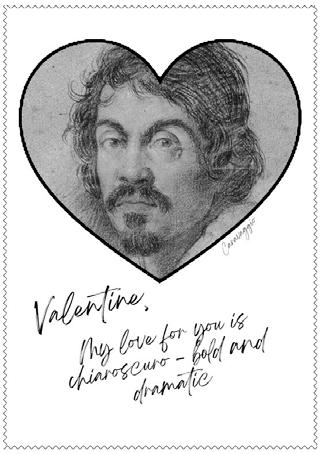 Caravaggio
Valentine,
My love for you is
chiaroscuro - bold and
dramatic